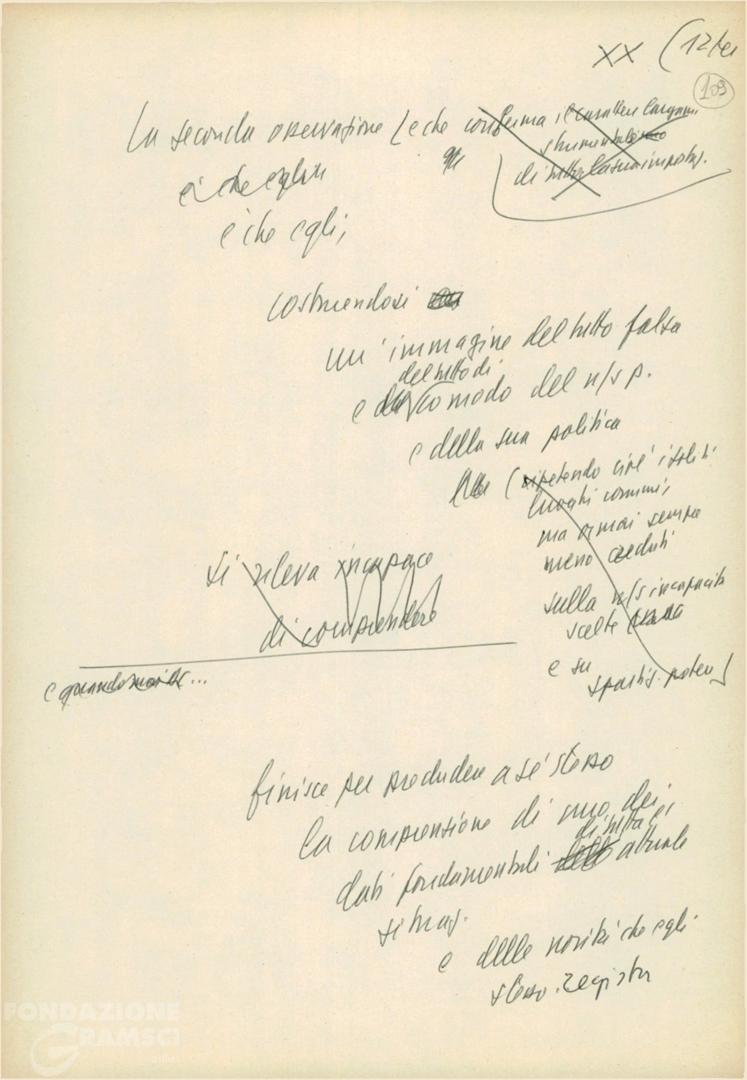 XX (12/
109
La seconda osservazione (e che conferma il carattere largam.
strumentale
di tutta la sua impostaz.
è che egli
è che egli,
costruendosi
un'immagine del tutto falsa
del tutto di
e comodo del n/s p.
e della sua politica
(ripetendo cioè i soliti
luoghi comuni,
ma ormai sempre
meno creduti
sulla n/s incapacità
scelte
e su
spartiz. potere)
si rileva incapace
di comprendere
e quando noi ...
finisce per precludere a se' stesso
la comprensione di uno dei
di tutta l'
dati fondamentali attuale
situaz.
e delle novità che egli
stesso registra
FONDAZIONE
GRAMSCI